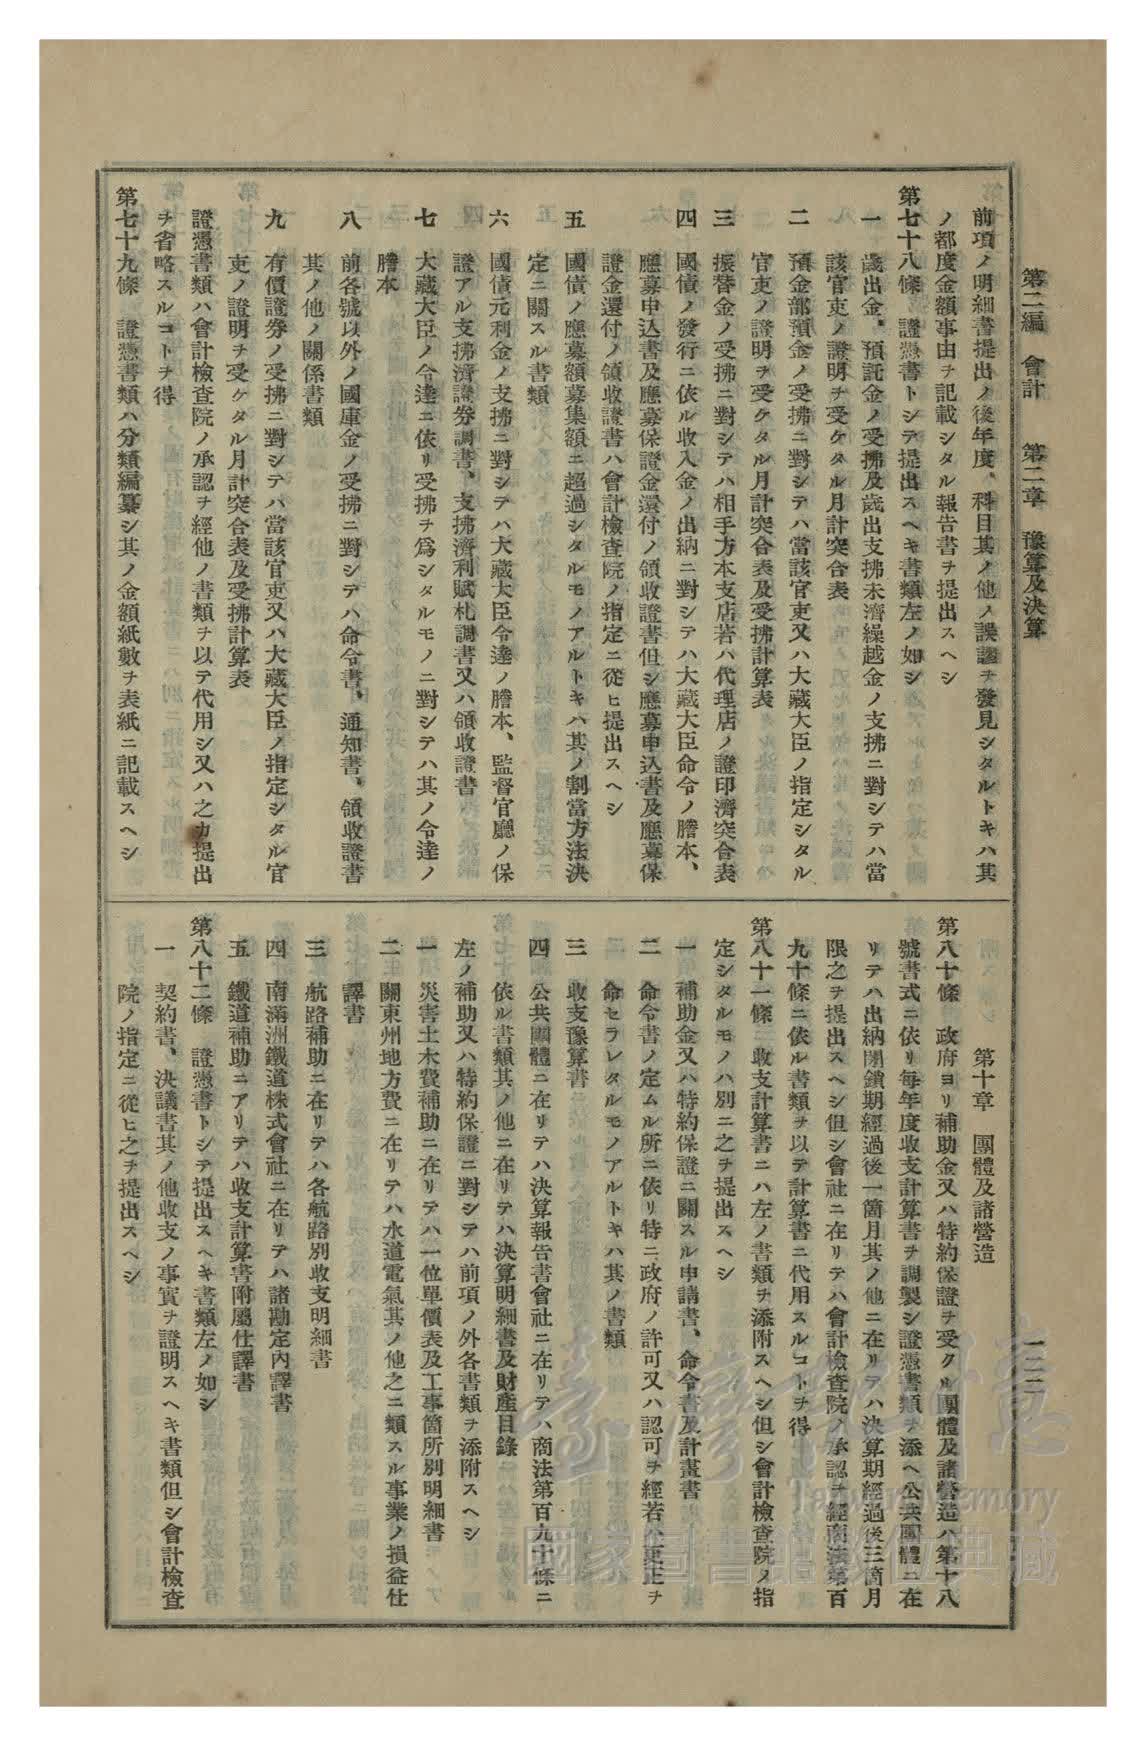 第二編　會計　　第二章　豫算及決算
一二二
前項ノ明細書提出ノ後年度、科目其ノ他ノ誤謬ヲ發見シタルトキハ其
ノ都度金額事由ヲ記載シタル報告書ヲ提出スヘシ
第七十八條　證憑書トシテ提出スヘキ書類左ノ如シ
一　歲出金、預託金ノ受拂及歲出支拂未濟繰越金ノ支拂ニ對シテハ當
該官吏ノ證明ヲ受ケタル月計突合表
二　預金部預金ノ受拂ニ對シテハ當該官吏又ハ大藏大臣ノ指定シタル
官吏ノ證明ヲ受ケタル月計突合表及受拂計算表
三　振替金ノ受拂ニ對シテハ相手方本支店若ハ代理店ノ證印濟突合表
四　國債ノ發行ニ依ル收入金ノ出納ニ對シテハ大藏大臣命令ノ謄本、
應募申込書及應募保證金還付ノ領收證書但シ應募申込書及應募保
證金還付ノ領收證書ハ會計檢查院ノ指定ニ從ヒ提出スヘシ
五　國債ノ應募額募集額ニ超過シタルモノアルトキハ其ノ割當方法決
定ニ關スル書類
六　國債元利金ノ支拂ニ對シテハ大藏大臣令達ノ謄本、監督官廳ノ保
證アル支拂濟證券調書、支拂濟利賦札調書又ハ領收證書
七　大藏大臣ノ令達ニ依リ受拂ヲ爲シタルモノニ對シテハ其ノ令達ノ
謄本
八　前各號以外ノ國庫金ノ受拂ニ對シテハ命令書、通知書、領收證書
其ノ他ノ關係書類
九　有價證券ノ受拂ニ對シテハ當該官吏又ハ大藏大臣ノ指定シタル官
吏ノ證明ヲ受ケタル月計突合表及受拂計算表
證憑書類ハ會計檢查院ノ承認ヲ經他ノ書類ヲ以テ代用シ又ハ之カ提出
ヲ省略スルコトヲ得
第七十九條　證憑書類ハ分類編纂シ其ノ金額紙數ヲ表紙ニ記載スヘシ
第十章　團體及諸營造
第八十條　政府ヨリ補助金又ハ特約保證ヲ受クル團體及諸營造ハ第十八
號書式ニ依リ每年度收支計算書ヲ調製シ證憑書類ヲ添ヘ公共團體ニ在
リテハ出納閉鎖期經過後一箇月其ノ他ニ在リテハ決算期經過後三箇月
限之ヲ提出スヘシ但シ會社ニ在リテハ會計檢查院ノ承認ヲ經商法第百
九十條ニ依ル書類ヲ以テ計算書ニ代用スルコトヲ得
第八十一條　收支計算書ニハ左ノ書類ヲ添附スヘシ但シ會計檢查院ノ指
定シタルモノハ別ニ之ヲ提出スヘシ
一　補助金又ハ特約保證ニ關スル申請書、命令書及計畫書
二　命令書ノ定ムル所ニ依リ特ニ政府ノ許可又ハ認可ヲ經若ハ更正ヲ
命セラレタルモノアルトキハ其ノ書類
三　收支豫算書
四　公共團體ニ在リテハ決算報告書會社ニ在リテハ商法第百九十條ニ
依ル書類其ノ他ニ在リテハ決算明細書及財產目錄
左ノ補助又ハ特約保證ニ對シテハ前項ノ外各書類ヲ添附スヘシ
一　災害土木費補助ニ在リテハ一位單價表及工事箇所別明細書
二　關東州地方費ニ在リテハ水道電氣其ノ他之ニ類スル事業ノ損益仕
譯書
三　航路補助ニ在リテハ各航路別收支明細書
四　南滿洲鐵道株式會社ニ在リテハ諸勘定內譯書
五　鐵道補助ニアリテハ收支計算書附屬仕譯書
第八十二條　證憑書トシテ提出スヘキ書類左ノ如シ
一　契約書、決議書其ノ他收支ノ事實ヲ證明スヘキ書類但シ會計檢查
院ノ指定ニ從ヒ之ヲ提出スヘシ
臺灣記憶
Taiwan Memory
國家圖書館數位典藏